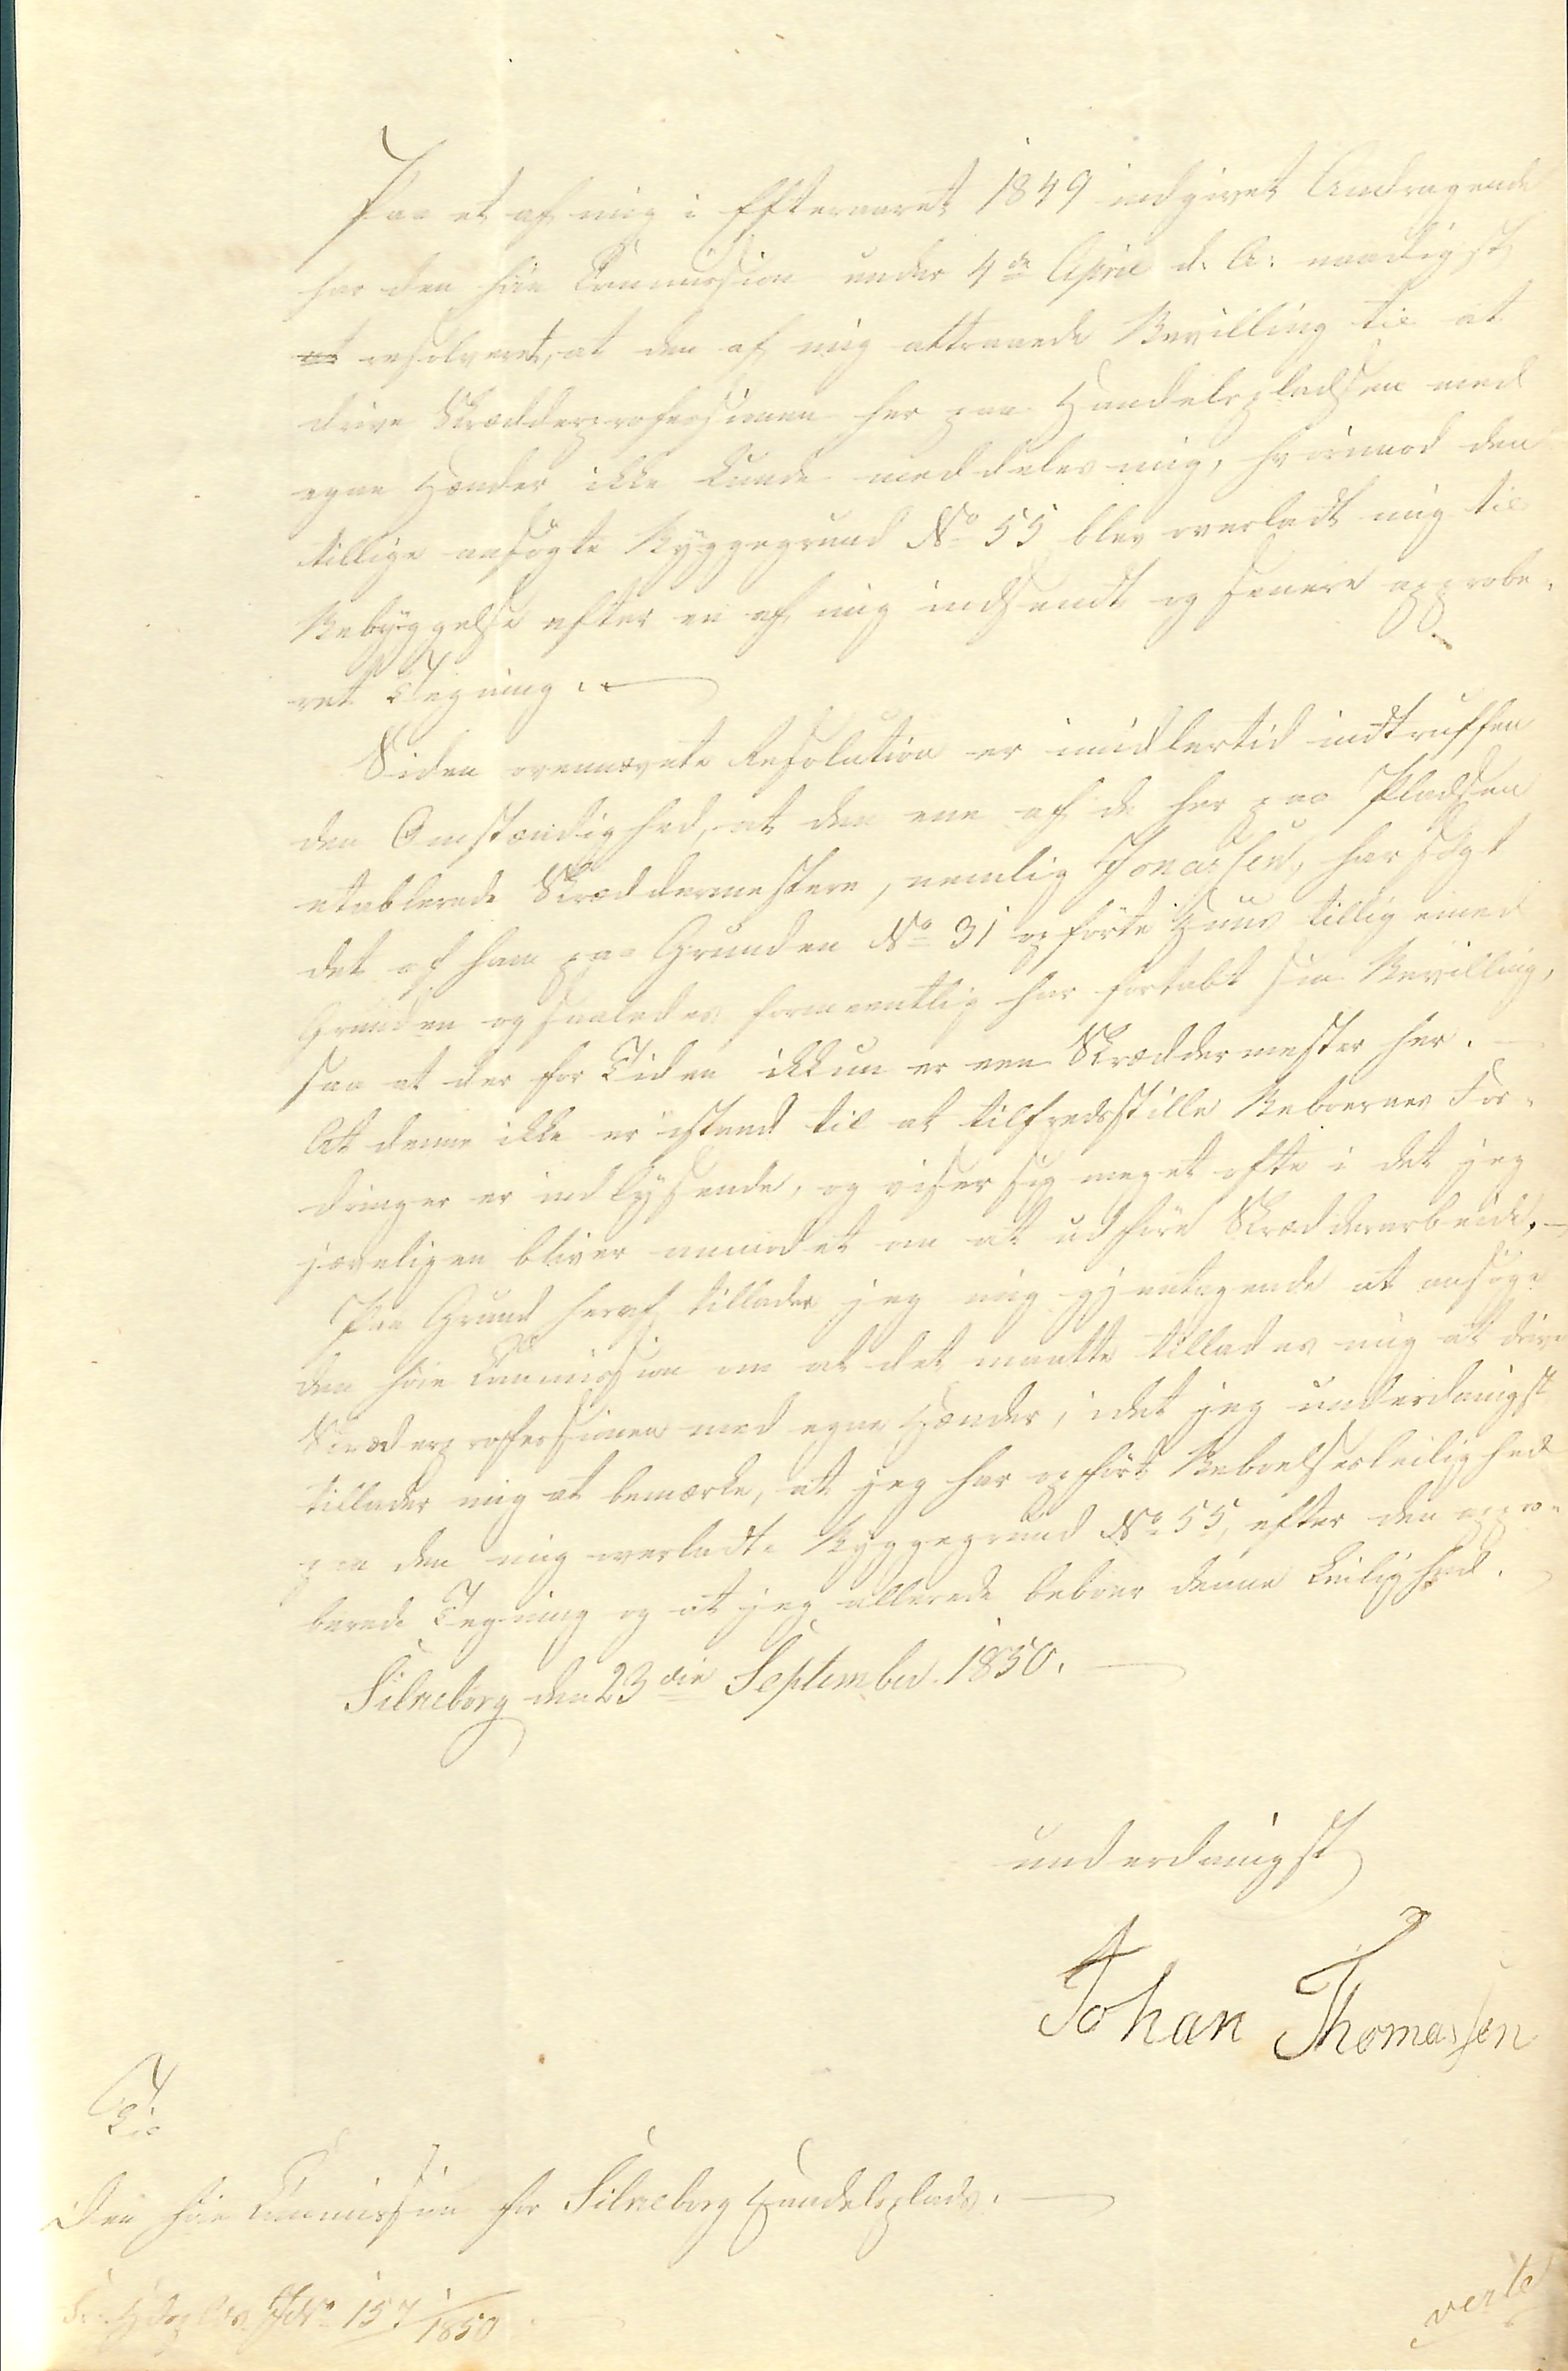 Paa et af mig i Efteraaret 1849 indgivet Andragende
har den høie Commission under 4de April d. A. naadigst
at resolveret, at den af mig attraaede Bevilling til at
drive Skrædderprofessionen her paa Handelspladsen med
egne Hænder ikke kunde meddeles mig, hvorimod den
tillige ansøgte Byggegrund No 55 blev overladt mig til
Bebyggelse efter en af mig indsendt og senere approbe-
ret Tegning. —
Siden ovennævnte Resolution er imidlertid indtruffen
den Omstændighed, at den ene af de her paa Pladsen
etablerede Skræddermestere, nemlig Jonassen, har solgt
det af ham paa Grunden No 31 opførte Huus tilligemed
Grunden og saaledes formeentlig har fortabt sin Bevilling,
saa at der for Tiden ikkun er een Skræddermester her. —
At denne ikke er istand til at tilfredsstille Beboernes For-
dringer er indlysende, og viser sig meget ofte i det jeg
jævnligen bliver anmodet om at udføre Skrædderarbeide. —
Paa Grund heraf tillader jeg mig gjentagende at ansøge
den høie Commission om at det maatte tillades mig at drive
Skræderprofessionen med egne Hænder, idet jeg underdanigst
tillader mig at bemærke, at jeg har opført Beboelsesleilighed
paa den mig overladte Byggegrund No 55, efter den appro-
berede Tegning og at jeg allerede beboer denne Leilighed.
Silkeborg den 23die September 1850. —
underdanigst
Johan Thomassen
Til
Den høie Commission for Silkeborg Handelsplads. —
JNo 157/1850
verte